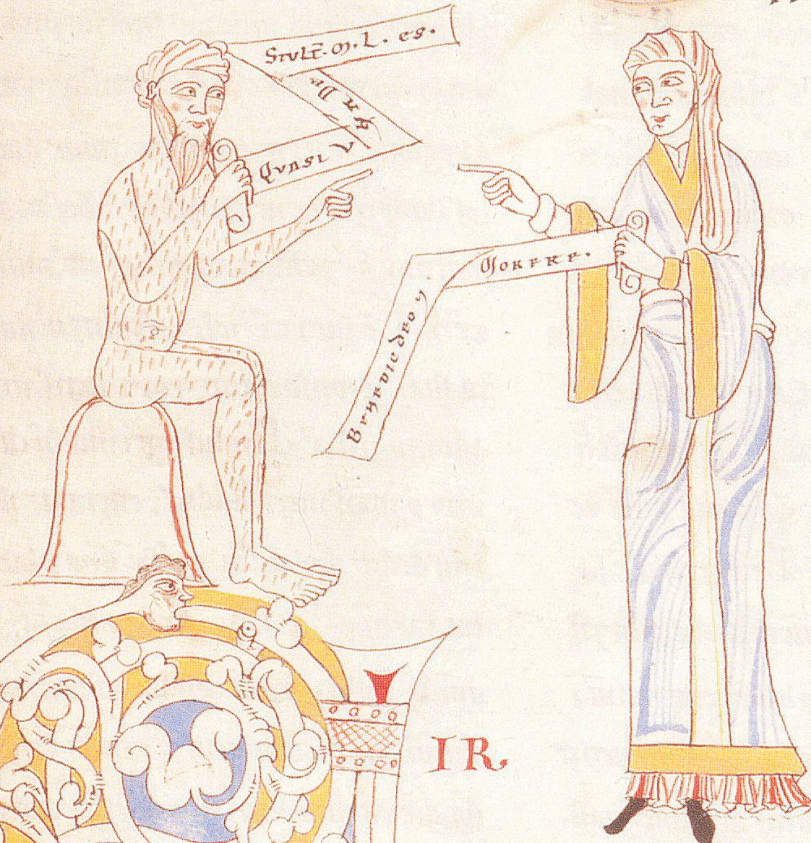 QUASI V
NA DE
STULT̄. M. L. ES.
BENEDIC DEO ⁊
MORERE.
IR.